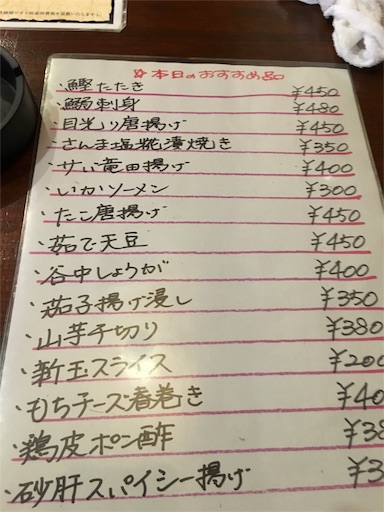 ☆本日のおすすめ品
・鰹たたき ¥450
・鰯刺身 ¥480
・目光り唐揚げ ¥450
・さんま塩糀漬焼き ¥350
・サバ竜田揚げ ¥400
・いかソーメン ¥300
・たこ唐揚げ ¥450
・茹で天豆 ¥450
・谷中しょうが ¥400
・茄子揚げ浸し ¥350
・山芋千切り ¥380
・新玉スライス ¥200
・もちチーズ春巻き ¥40
・鶏皮ポン酢 ¥38
・砂肝スパイシー揚げ ¥3